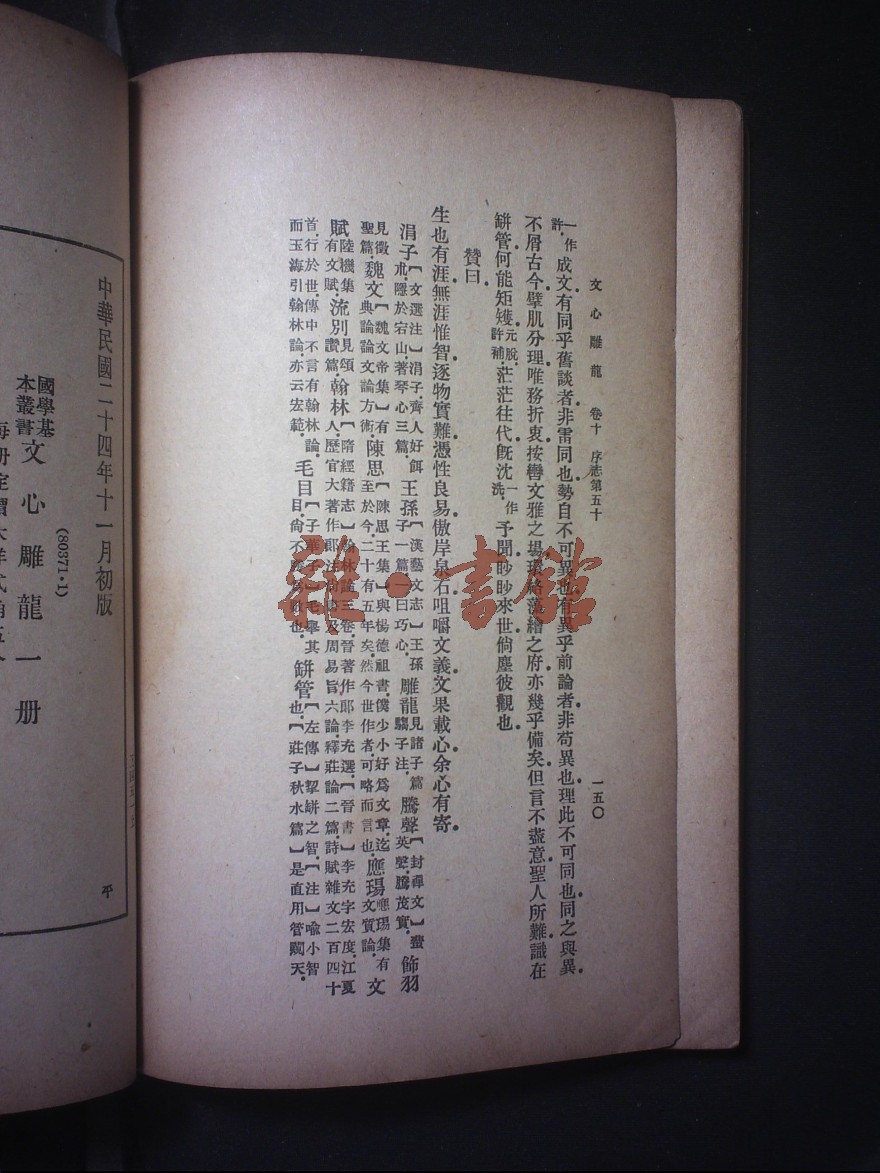 文心雕龍 卷十 序志第五十 一五〇
一作許.成文.有同乎舊談者.非雷同也.勢自不可異也.有異乎前論者.非苟異也.理此不可同也.同之與異.
不屑古今.擘肌分理.唯務折衷.按轡文雅之場.環絡藻繪之府.亦幾乎備矣.但言不盡意.聖人所難.識在
缾管.何能矩矱.元脫.許補.茫茫往代.旣沈一作洗.予聞.眇眇來世.倘塵彼觀也.
贊曰.
生也有涯.無涯惟智.逐物實難.憑性良易.傲岸泉石.咀嚼文義.文果載心.余心有寄.
涓子【文選注】涓子.齊人.好餌朮.隱於宕山.著琴心三篇. 王孫【漢藝文志】王孫子一篇.一曰巧心. 雕龍見諸子篇騶子注. 騰聲【封禪文】蜚英聲.騰茂實. 飾羽
見徵聖篇. 魏文【魏文帝集】有典論論文.論方術. 陳思【陳思王集】與楊德祖書.僕少小好爲文章.迄至於今.二十有五年矣.然今世作者.可略而言也. 應瑒應瑒集有文質論. 文
賦陸機集有文賦. 流別見頌讚篇. 翰林【隋經籍志】翰林論三卷.晉著作郎李充選.【晉書】李充字宏度.江夏人.歷官大著作郎.注尚書及周易旨六論.釋莊論二篇.詩賦雜文二百四十
首.行於世.傳中不言有翰林論.而玉海引翰林論.亦云宏範. 毛目【子華子】毛舉其目.尙不勝爲數也. 缾管【左傳】挈缾之智.【注】喻小智也.【莊子秋水篇】是直用管闚天.
中華民國二十四年十一月初版
(80371·1)
國學基本叢書 文心雕龍一册
平
雜·書館